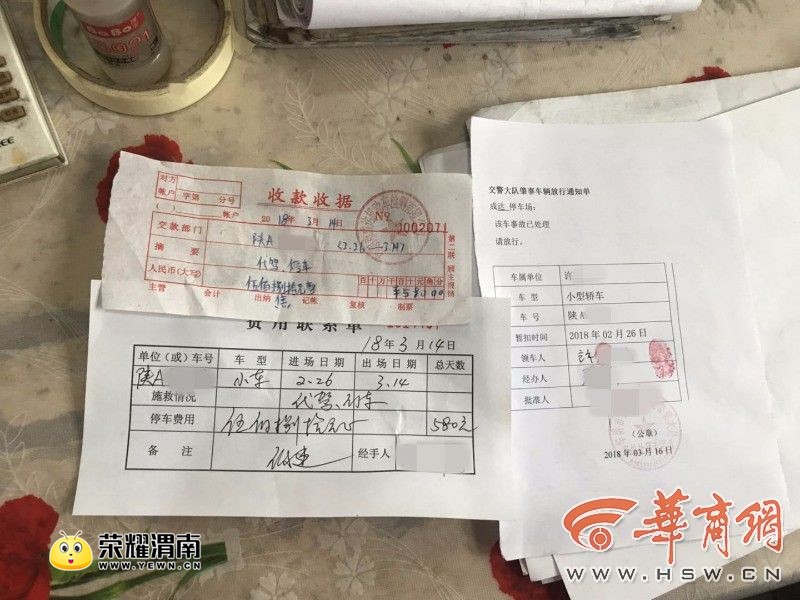 BoBo
对方
帐户 字第 分号
收款收据
( ) 帐户 2018年3月14日
№ 1002071
交款部门 陕A
2.26—3.14
摘要 代驾、停车
人民币(大写) 伍佰捌拾元整
百十万千百十元角分
¥580.00
主管 会计 出纳 记帐 复核 制票
费用联系单
18年3月14日
单位(或)车号 车型 进场日期 出场日期 总天数
陕A 小车 2.26 3.14
施救情况 代驾
停车费用 伍佰捌拾元正 580元
备注 经手人
交警大队肇事车辆放行通知单
成达 停车场:
该车事故已处理
请放行。
车属单位 许
车型 小型轿车
车号 陕A
暂扣时间 2018年02月26日
领车人
经办人
批准人
(公章)
2018年03月16日
荣耀渭南
WWW.YEWN.CN
華商網
WWW.HSW.CN